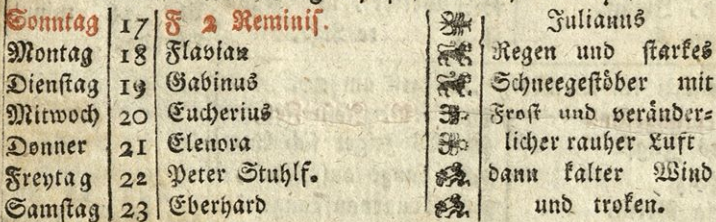 Sonntag 17 F 2 Reminiſ. Julianus
Montag 18 Flavian Regen und ſtarkes
Dienſtag 19 Gabinus Schneegeſtöber mit
Mitwoch 20 Eucherius Froſt und veränder-
Donner 21 Elenora licher rauher Luft
Freytag 22 Peter Stuhlf. dann kalter Wind
Samſtag 23 Eberhard und troken.